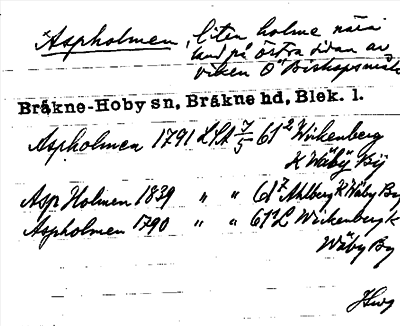 *Aspholmen, liten holme nära
land på östra sidan av
viken O Biskopsmåla
Bräkne-Hoby sn, Bräkne hd, Blek. l.
Aspholmen 1791 LSA 7/5 61² Wickenberg
K Wäby By
Asp Holmen 1839 " " 61⁷ Ahlberg K Wäby By
Aspholmen 1790 " " 61¹ L Wickenberg K
Wäby By